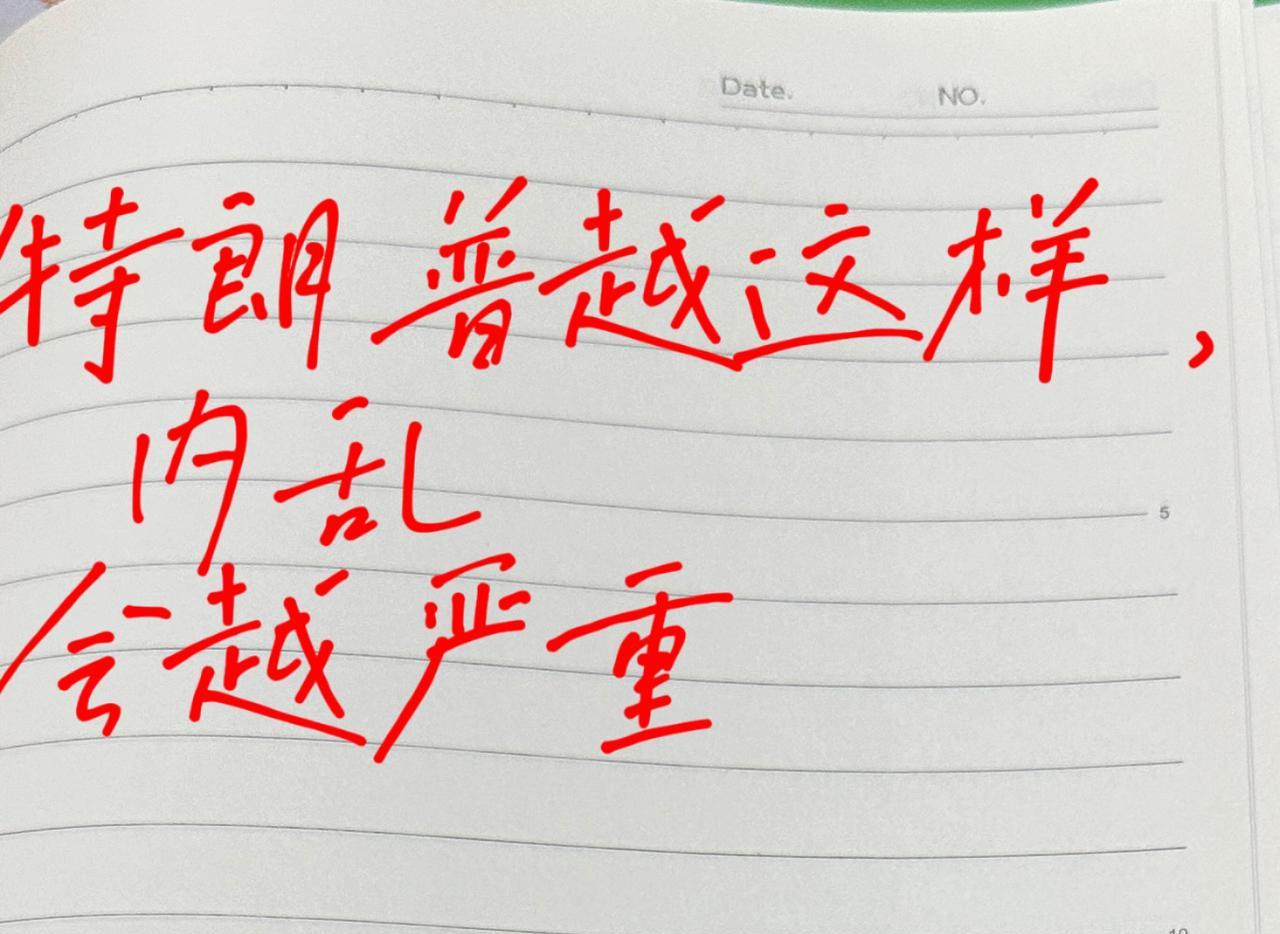 Date. NO.
特朗普越这样，
内乱
5
会越严重
10